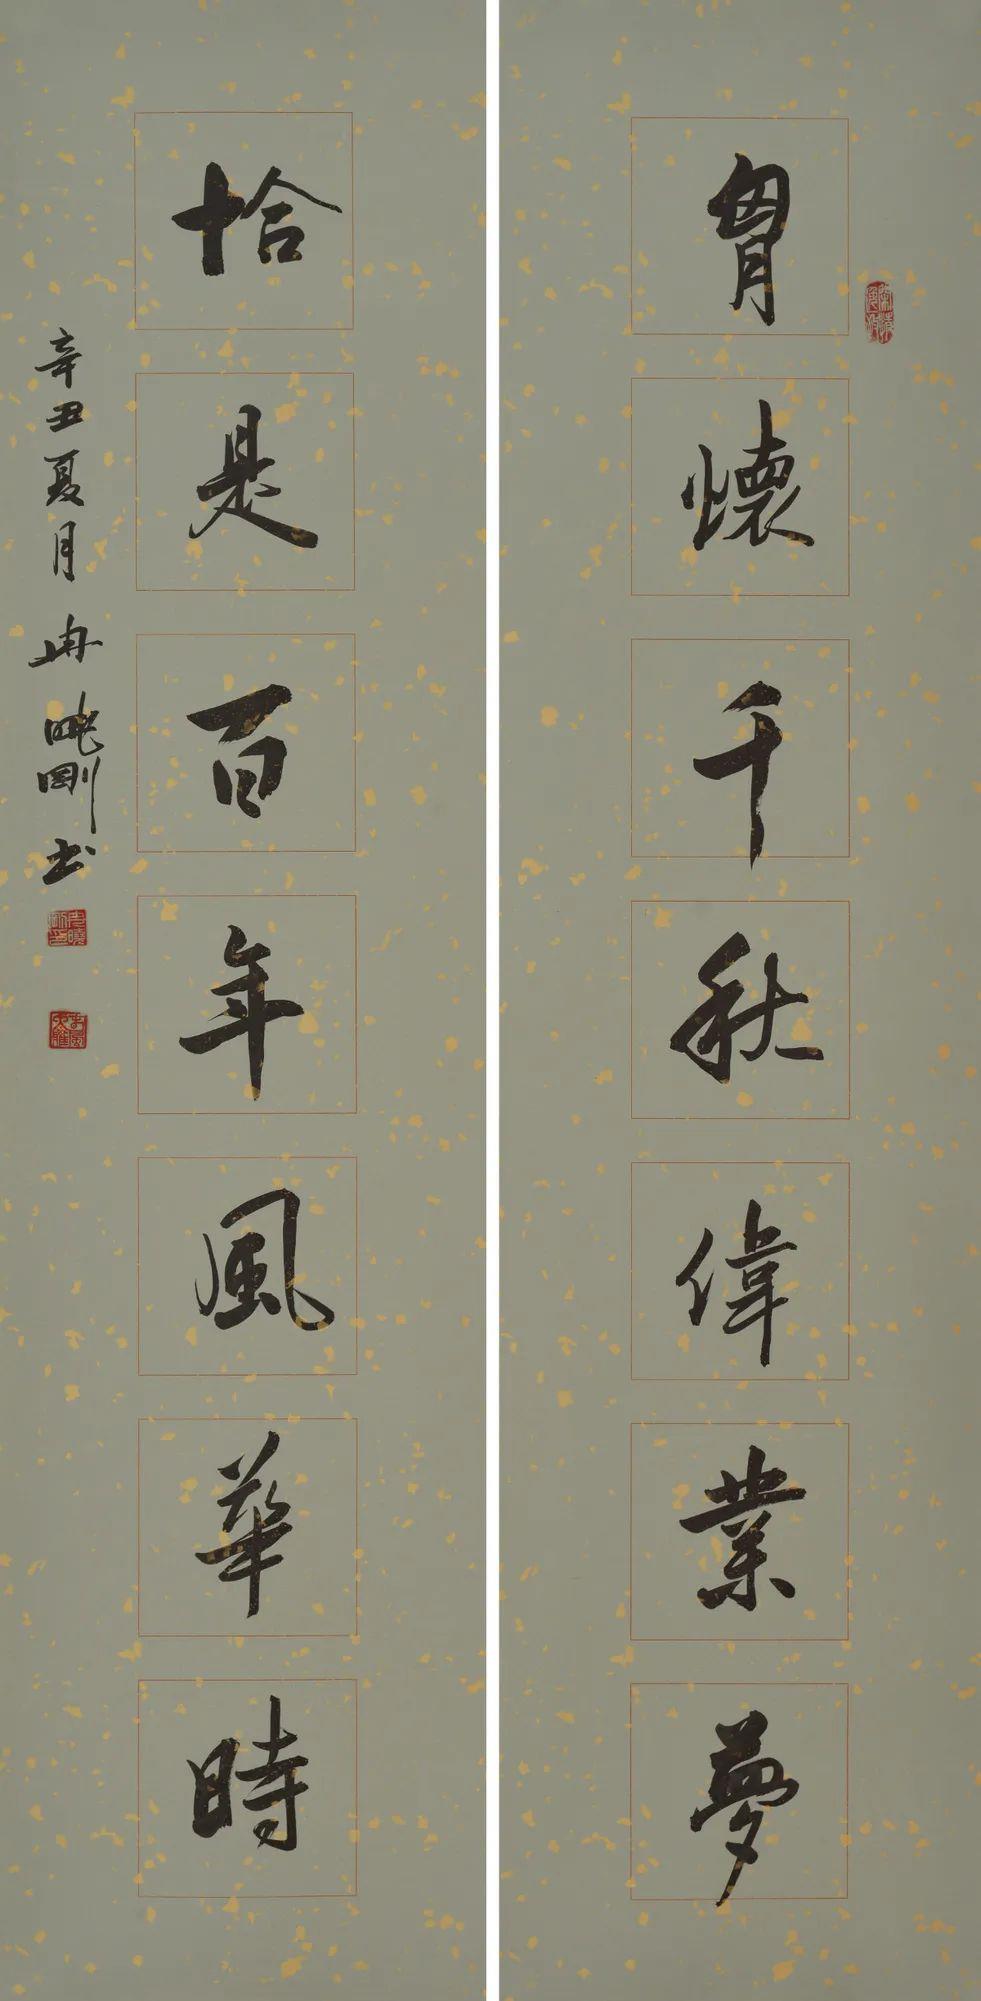 胷懷千秋偉業夢
恰是百年風華時
辛丑夏月 冉曉剛書